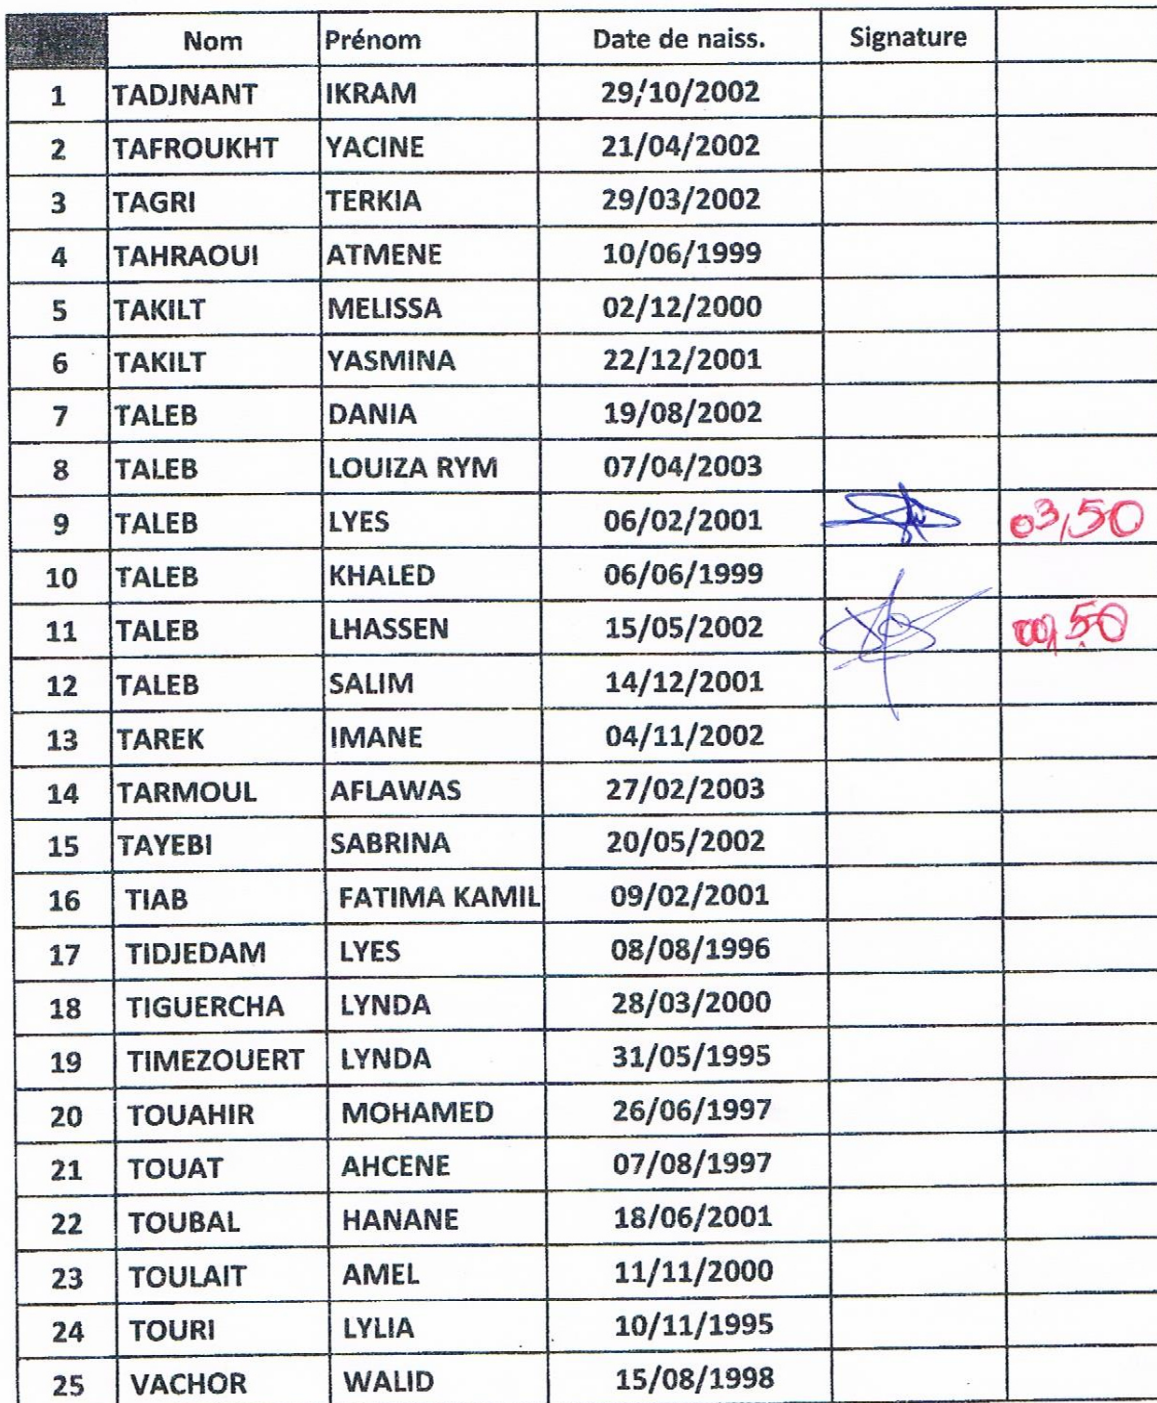 Nom Prénom Date de naiss. Signature
1 TADJNANT IKRAM 29/10/2002
2 TAFROUKHT YACINE 21/04/2002
3 TAGRI TERKIA 29/03/2002
4 TAHRAOUI ATMENE 10/06/1999
5 TAKILT MELISSA 02/12/2000
6 TAKILT YASMINA 22/12/2001
7 TALEB DANIA 19/08/2002
8 TALEB LOUIZA RYM 07/04/2003
9 TALEB LYES 06/02/2001 03,50
10 TALEB KHALED 06/06/1999
11 TALEB LHASSEN 15/05/2002 00,50
12 TALEB SALIM 14/12/2001
13 TAREK IMANE 04/11/2002
14 TARMOUL AFLAWAS 27/02/2003
15 TAYEBI SABRINA 20/05/2002
16 TIAB FATIMA KAMIL 09/02/2001
17 TIDJEDAM LYES 08/08/1996
18 TIGUERCHA LYNDA 28/03/2000
19 TIMEZOUERT LYNDA 31/05/1995
20 TOUAHIR MOHAMED 26/06/1997
21 TOUAT AHCENE 07/08/1997
22 TOUBAL HANANE 18/06/2001
23 TOULAIT AMEL 11/11/2000
24 TOURI LYLIA 10/11/1995
25 VACHOR WALID 15/08/1998